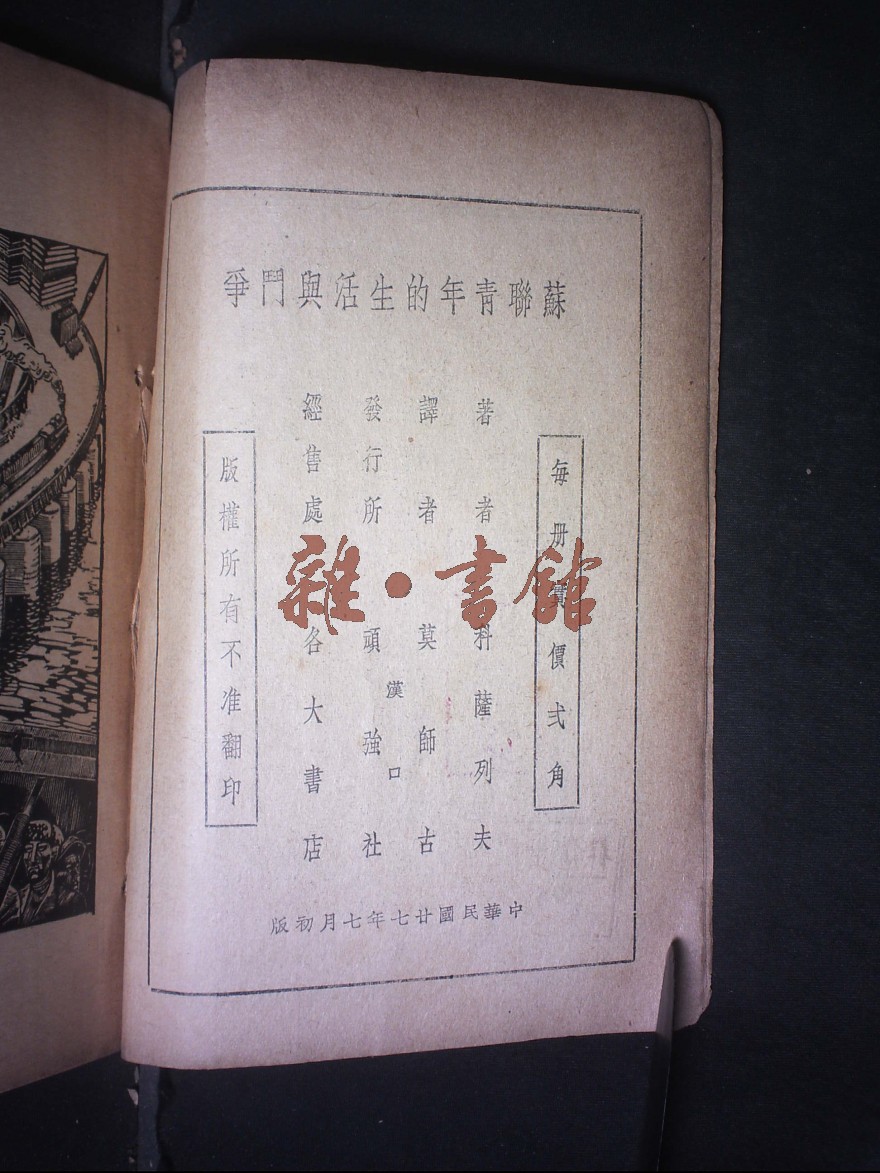 蘇聯青年的生活與鬥爭
每册實價弍角
著者 科薩列夫
譯者 莫師古
漢口
發行所 頑強社
經售處 各大書店
版權所有不准翻印
中華民國廿七年七月初版
雜·書館